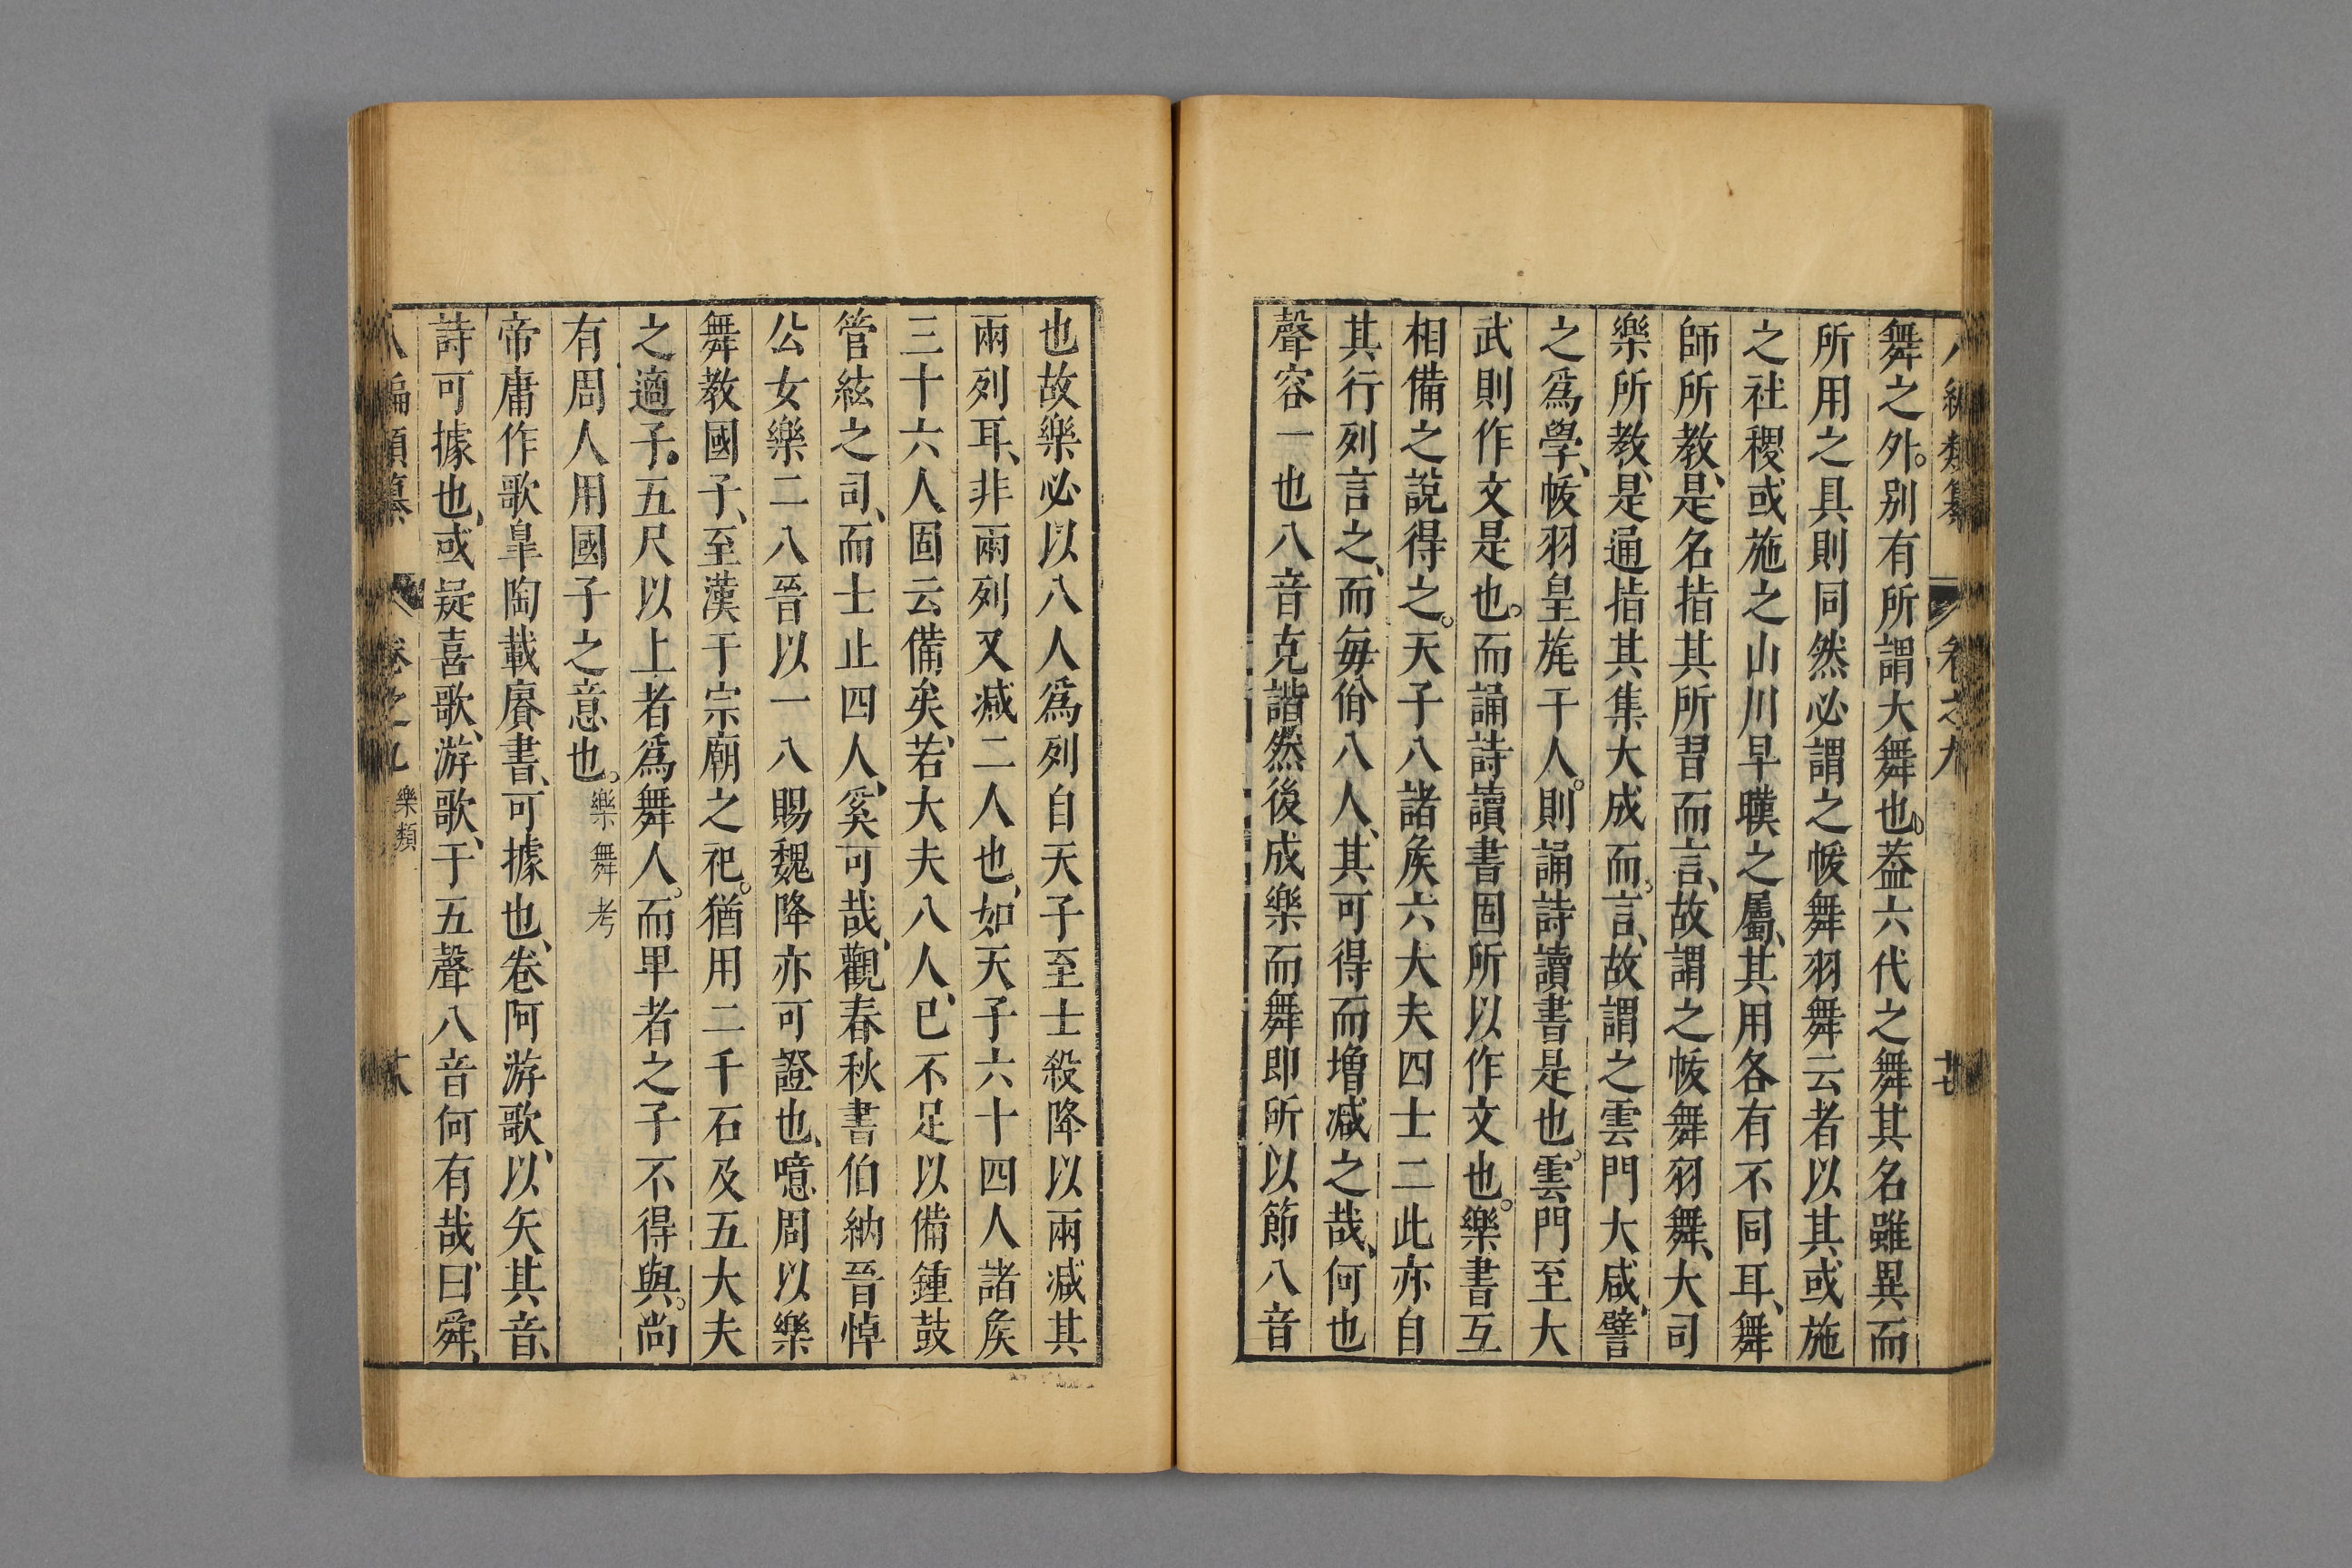 八編類纂 卷之九 廿七
舞之外。別有所謂大舞也。葢六代之舞其名雖異而
所用之具則同然必謂之帗舞羽舞云者以其、或施
之社稷、或施之山川旱暵之屬、其用各有不同耳、舞
師所教、是名指其所習而言、故謂之帗舞羽舞、大司
樂所教、是通指其集大成而。言、故謂之雲門大咸、譬
之爲學、帗羽皇旄干人。則誦詩讀書是也。雲門至大
武則作文是也。而誦詩讀書固所以作文也。樂書互
相備之說得之。天子八諸矦六大夫四士二此亦自
其行列言之、而每佾八人、其可得而增減之哉、何也
聲容一也八音克諧然後成樂而舞即所以節八音
也故樂必以八人爲列自天子至士殺降以兩減其
兩列耳、非兩列又減二人也、如天子六十四人諸矦
三十六人固云備矣、若大夫八人、已不足以備鍾鼓
管絃之司、而士止四人、奚可哉、觀春秋書伯納晉悼
公女樂二八晉以一八賜魏降亦可證也、噫周以樂
舞教國子、至漢于宗廟之祀。猶用二千石及五大夫
之適子。五尺以上者爲舞人。而卑者之子不得與。尚
有周人用國子之意也。樂舞考
帝庸作歌皐陶載賡書、可據也、卷阿游歌、以矢其音、
詩可據也、或疑喜歌、游歌、于五聲八音何有哉、曰舜、
八編類纂 卷之九 樂類